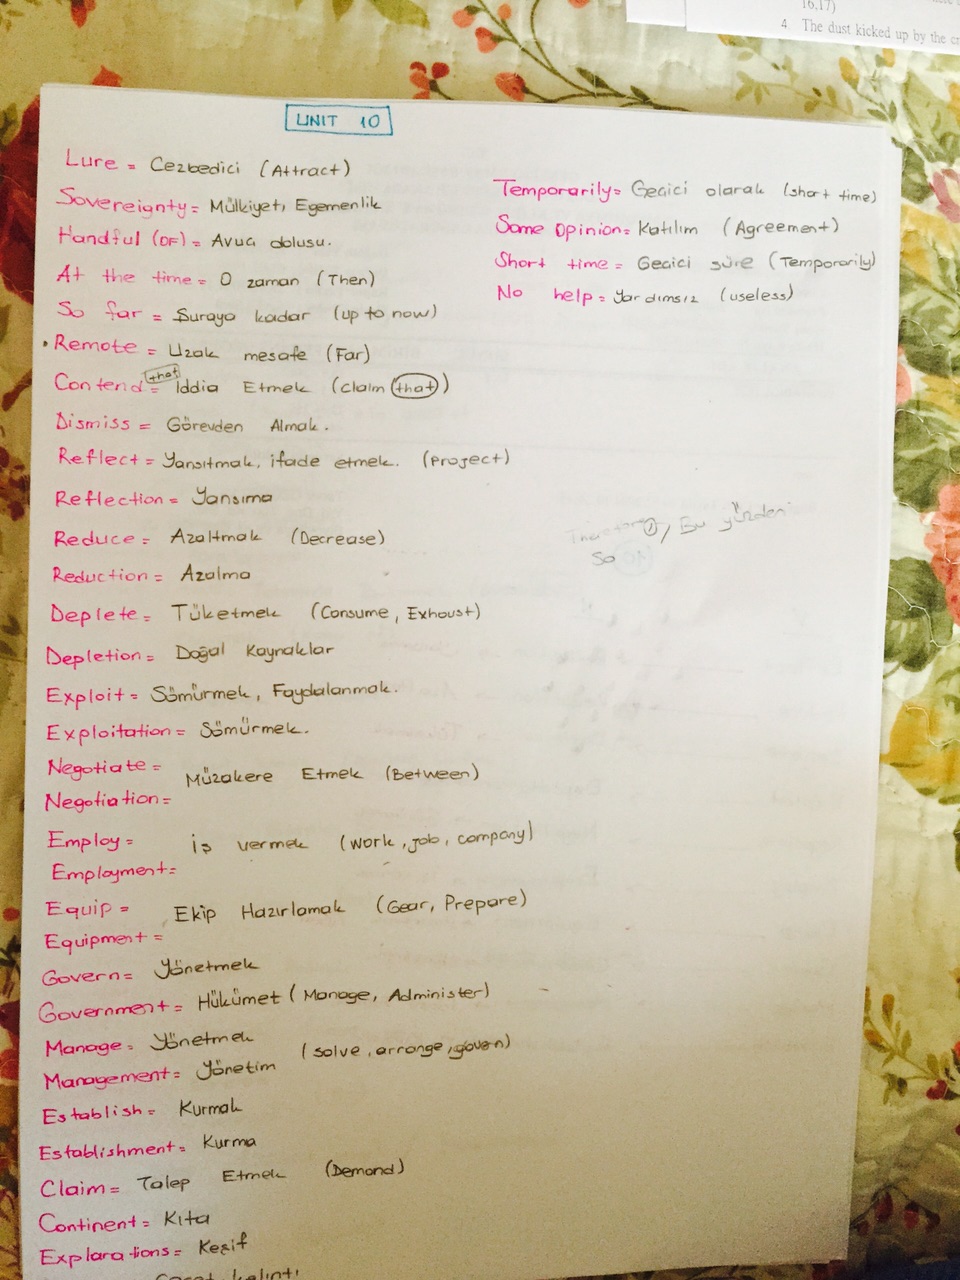 16,17)
4. The dust kicked up by the
UNIT 10
Lure = Cezbedici (Attract)
Sovereignty = Mülkiyet, Egemenlik
Handful (OF) = Avuç dolusu.
At the time = O zaman (Then)
So far = Şuraya kadar (up to now)
Remote = Uzak mesafe (Far)
Contend that = İddia Etmek (claim that)
Dismiss = Görevden Almak.
Reflect = Yansıtmak, ifade etmek. (Project)
Reflection = Yansıma
Reduce = Azaltmak (Decrease)
Reduction = Azalma
Deplete = Tüketmek (Consume, Exhoust)
Depletion = Doğal Kaynaklar
Exploit = Sömürmek, Faydalanmak.
Exploitation = Sömürmek.
Negotiate = Müzakere Etmek (Between)
Negotiation =
Employ = iş vermek (work, job, company)
Employment =
Equip = Ekip Hazırlamak (Gear, Prepare)
Equipment =
Govern = Yönetmek
Government = Hükümet (Manage, Administer)
Manage = Yönetmek
(solve, arrange, govern)
Management = Yönetim
Establish = Kurmak
Establishment = Kurma
Claim = Talep Etmek (Demand)
Continent = Kıta
Explarations = Keşif
Temporarily = Geçici olarak (short time)
Same Opinion = Katılım (Agreement)
Short time = Geçici süre (Temporarily)
No help = Yardımsız (useless)
Bu yüzden
So